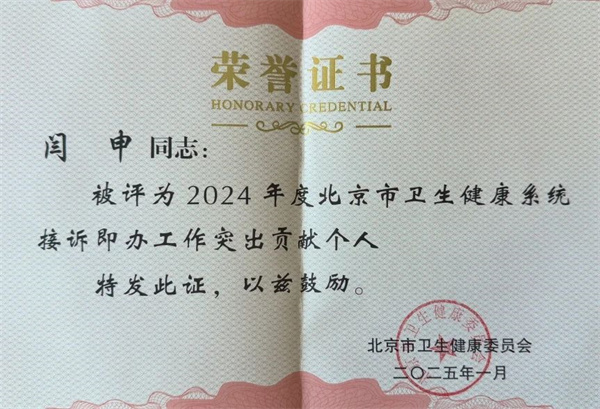 荣誉证书
HONORARY CREDENTIAL
闫 申 同志：
被评为 2024 年度北京市卫生健康系统
接诉即办工作突出贡献个人
特发此证，以兹鼓励。
北京市卫生健康委员会
二〇二五年一月